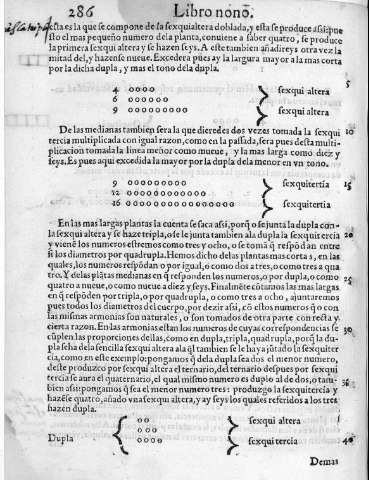 286 Libro nono.
esta es la que se compone de la sexquialtera doblada, y esta se produce assi: pue
sto el mas pequeño numero dela planta, conuiene a saber quatro, se produce
la primera sexquialtera y se hazen seys. A este tambien añadireys otra vez la
mitad del, y hazense nueue. Excedera pues ay la largura mayor a la mas corta
por la dicha dupla, y mas el tono dela dupla.
5
4 oooo
6 oooooo } sexquialtera
9 ooooooooo } sexquialtera
De las medianas tambien sera la que dieredes dos vezes tomada la sexqui 10
tercia multiplicada con igual razon, como en la passada, sera pues desta multi-
plicacion tomada la linea menor como nueue, y la mas larga como diez y
seys. Es pues aqui excedida la mayor por la dupla dela menor en vn tono.
9 ooooooooo } sexquitertia 15
12 oooooooooooo
16 oooooooooooooooo } sexquitertia
En las mas largas plantas la cuenta se saca assi, porq̃ o se junta la dupla con-
la sexquialtera y se haze tripla, o se le junta tambien ala dupla la sexquitercia 20
y vienē los numeros estremos como tres y ocho, o se toma q̃ respōdan entre
si los diametros por quadrupla. Hemos dicho delas plantas mas cortas, en las
quales, los numeros respōdan o por igual, o como dos a tres, o como tres a qua
tro. Y delas plātas medianas en q̃ responden los numeros, o por dupla, o como
quatro a nueue, o como nueue a diez y seys. Finalmēte cūtamos las mas largas 25
en q̃ respōden por tripla, o por quadrupla, o como tres a ocho, ajuntaremos
pues todos los diametros del cuerpo, por dezir assi, cō estos numeros q̃ o con
las mismas armonias son naturales, o son tomados de otra parte con cierta y
cierta razon. En las armonias estan los numeros de cuyas correspondencias se 30
cūplen las proporciones dellas, como en dupla, tripla, quadrupla, porq̃ la du-
pla se ha dela sencilla sexquialtera ala q̃l tambien se le haya jūtado la sexquiter
cia, como en este exemplo: pongamos q̃ dela dupla sea dos el menor numero,
deste produzco por sexquialtera el ternario, del ternario despues por sexqui
tercia se aura el quaternario, el qual mismo numero es duplo al de dos, o tam 35
bien assi pongamos q̃ sea el menor numero tres: produzgo la sexquitercia y
hazēse quatro, añado vna sexquialtera, y ay seys los quales referidos a los tres
hazen dupla.
oo } sexquialtera
Dupla { ooo
oooo } sexquitercia 40
Demas